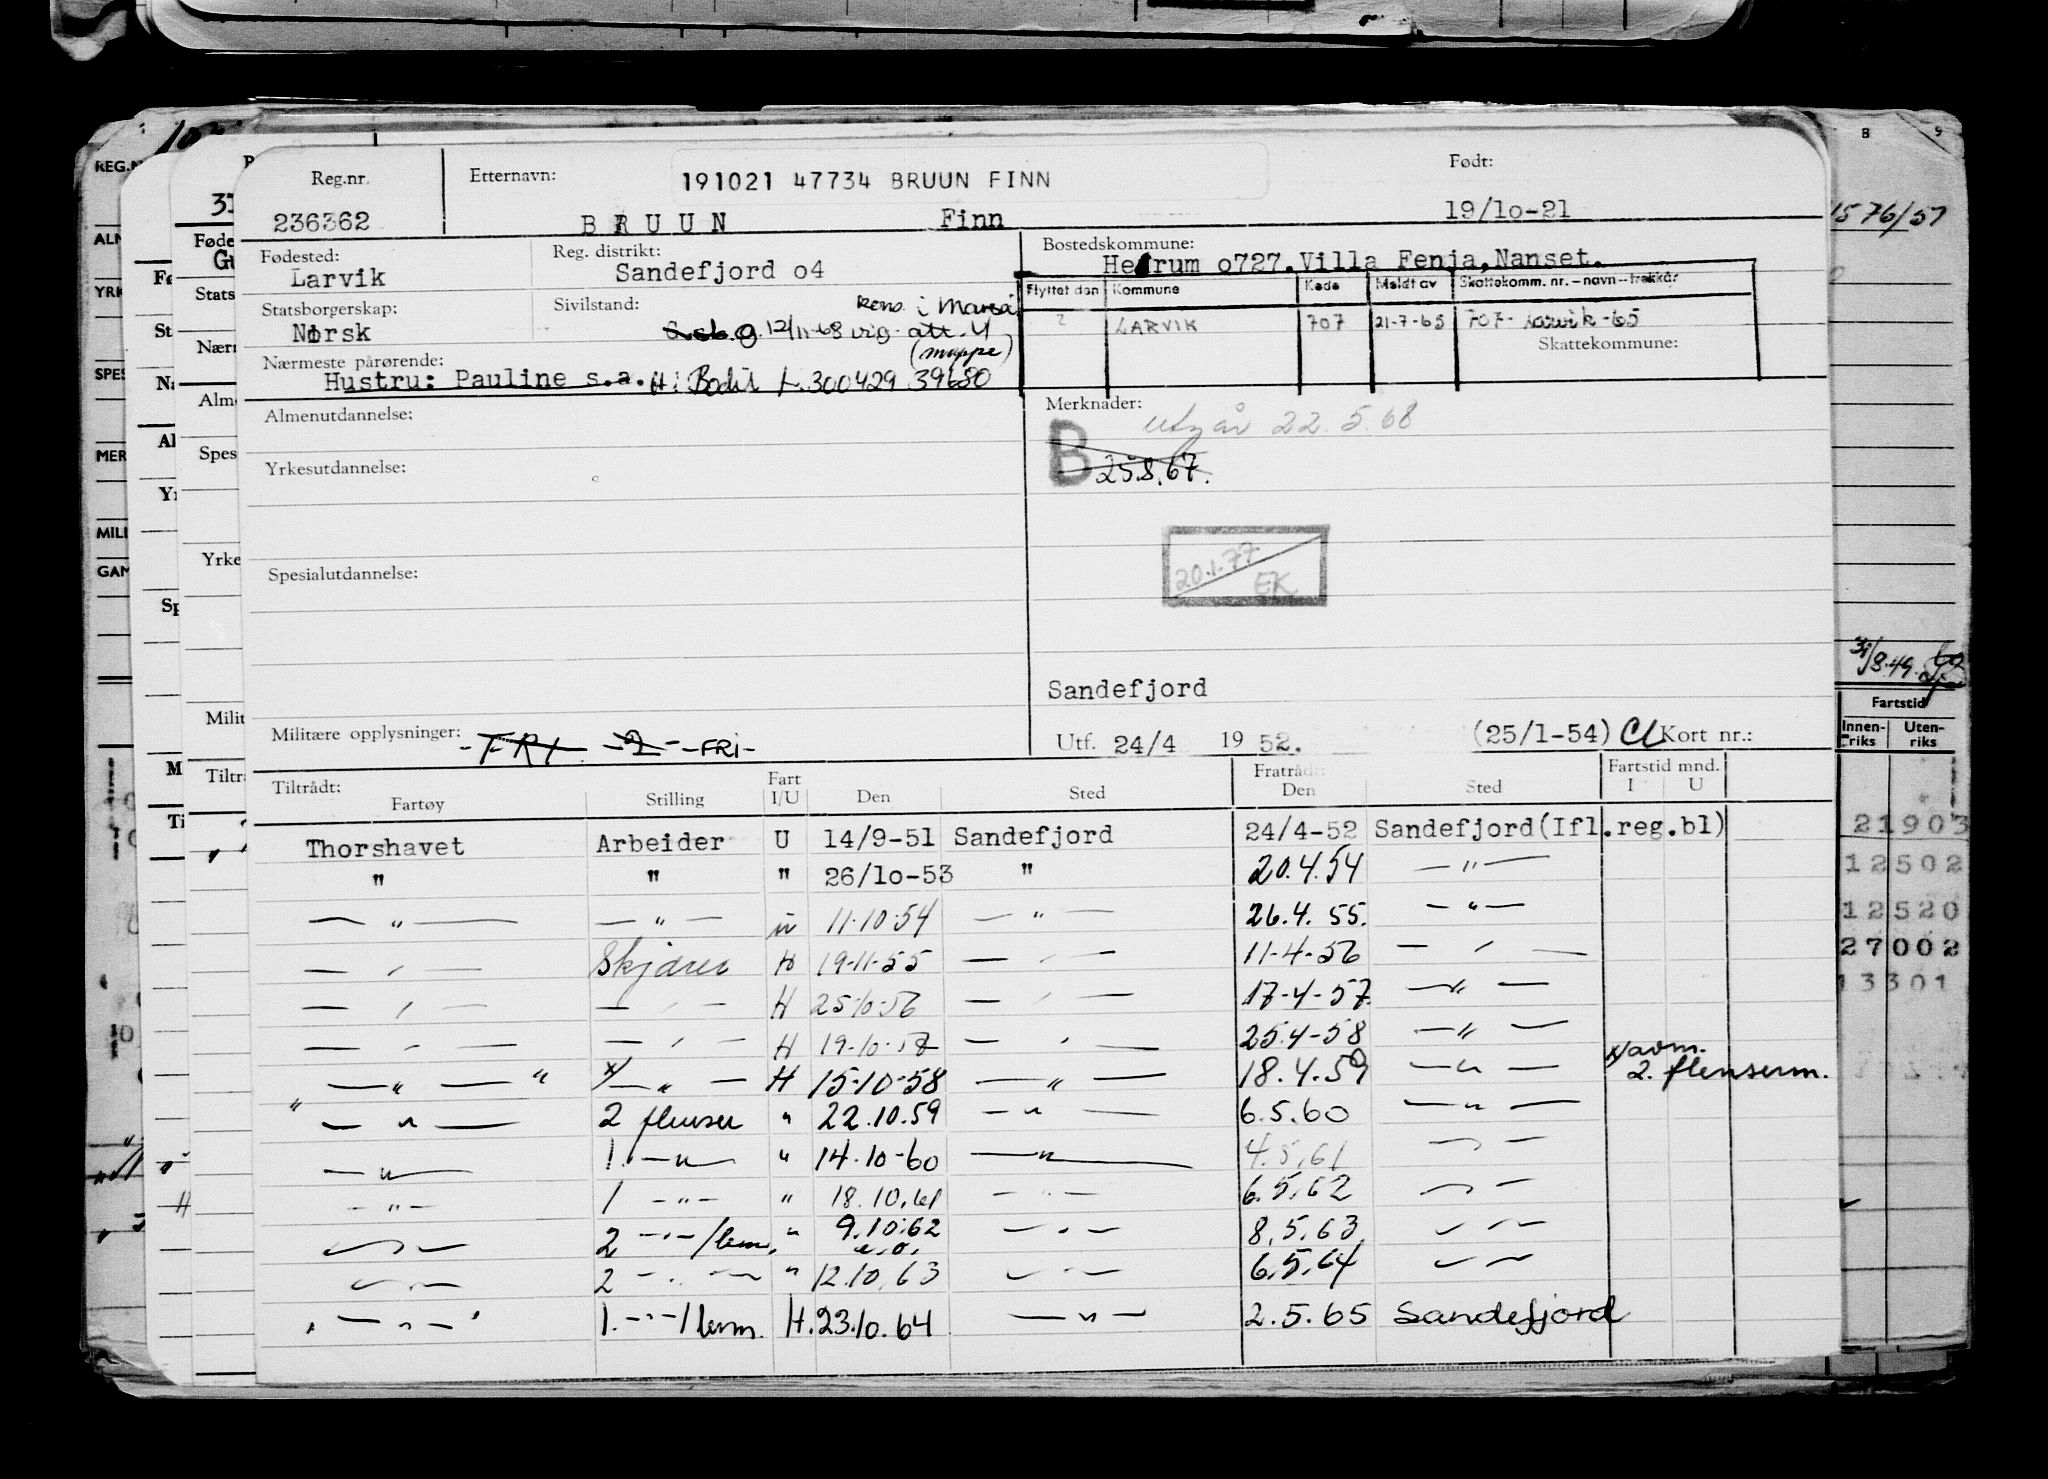 Reg.nr. Etternavn: 191021 47734 BRUUN FINN Født:
236362 BRUUN Finn 19/10-21
Fødested: Reg. distrikt: Bostedskommune:
Larvik Sandefjord 04 Hedrum 0727. Villa Fenja, Nanset.
Flyttet den Kommune Kode Meldt av Skattekomm. nr.-navn-trekkår
Statsborgerskap: Sivilstand:
Norsk 12/11-68 vig. att. 4
(mappe)
? LARVIK 707 21-7-65 707- Larvik -65
Skattekommune:
Nærmeste pårørende:
Hustru: Pauline s.a. H: Bodil f. 300429 39680
Almenutdannelse: Merknader:
Utgår 22.5.68
B
25.8.67.
Yrkesutdannelse:
20.1.77
EK
Spesialutdannelse:
Sandefjord
Militære opplysninger: -FRI -2- -FRI-
Utf. 24/4 1952. (25/1-54) Kort nr.:
Tiltrådt: Fart Fratrådt: Fartstid mnd.
Fartøy Stilling I/U Den Sted Den Sted I U
Thorshavet Arbeider U 14/9-51 Sandefjord 24/4-52 Sandefjord(Ifl.reg.bl)
" " " 26/10-53 " 20.4.54 — " —
— " — — " — " 11-10-54 — " — 26.4.55. — " —
— " — Skjærer H 19-11-55 — " — 11-4-56 — " —
— " — — " — H 25-10-56 — " — 17-4-57 — " —
— " — — " — H 19-10-57 — " — 25.4-58 — " —
— " — " x/ — " — H 15-10-58 — " — 18.4.59 — " — x/ avm. 2. flenserm.
" — " — 2 flenser " 22.10.59 — " — 6.5.60 — " —
— " — 1. — " — " 14.10-60 — " — 4.5.61 — " —
— " — 1 — " — " 18.10.61 — " — 6.5.62 — " —
— " — 2 — " — /lem. " 9.10.62 — " — 8.5.63 — " —
— " — 2 — " — " 12.10.63 — " — 6.5.64 — " —
— " — 1. — " — /lem. H. 23.10.64 — " — 2.5.65 Sandefjord
REG.N
YRK
SPES
MER
MILI
8 9
1576/51
31/8.49.
Fartstid
Innen-riks Uten-riks
21903
12502
12520
27002
13301